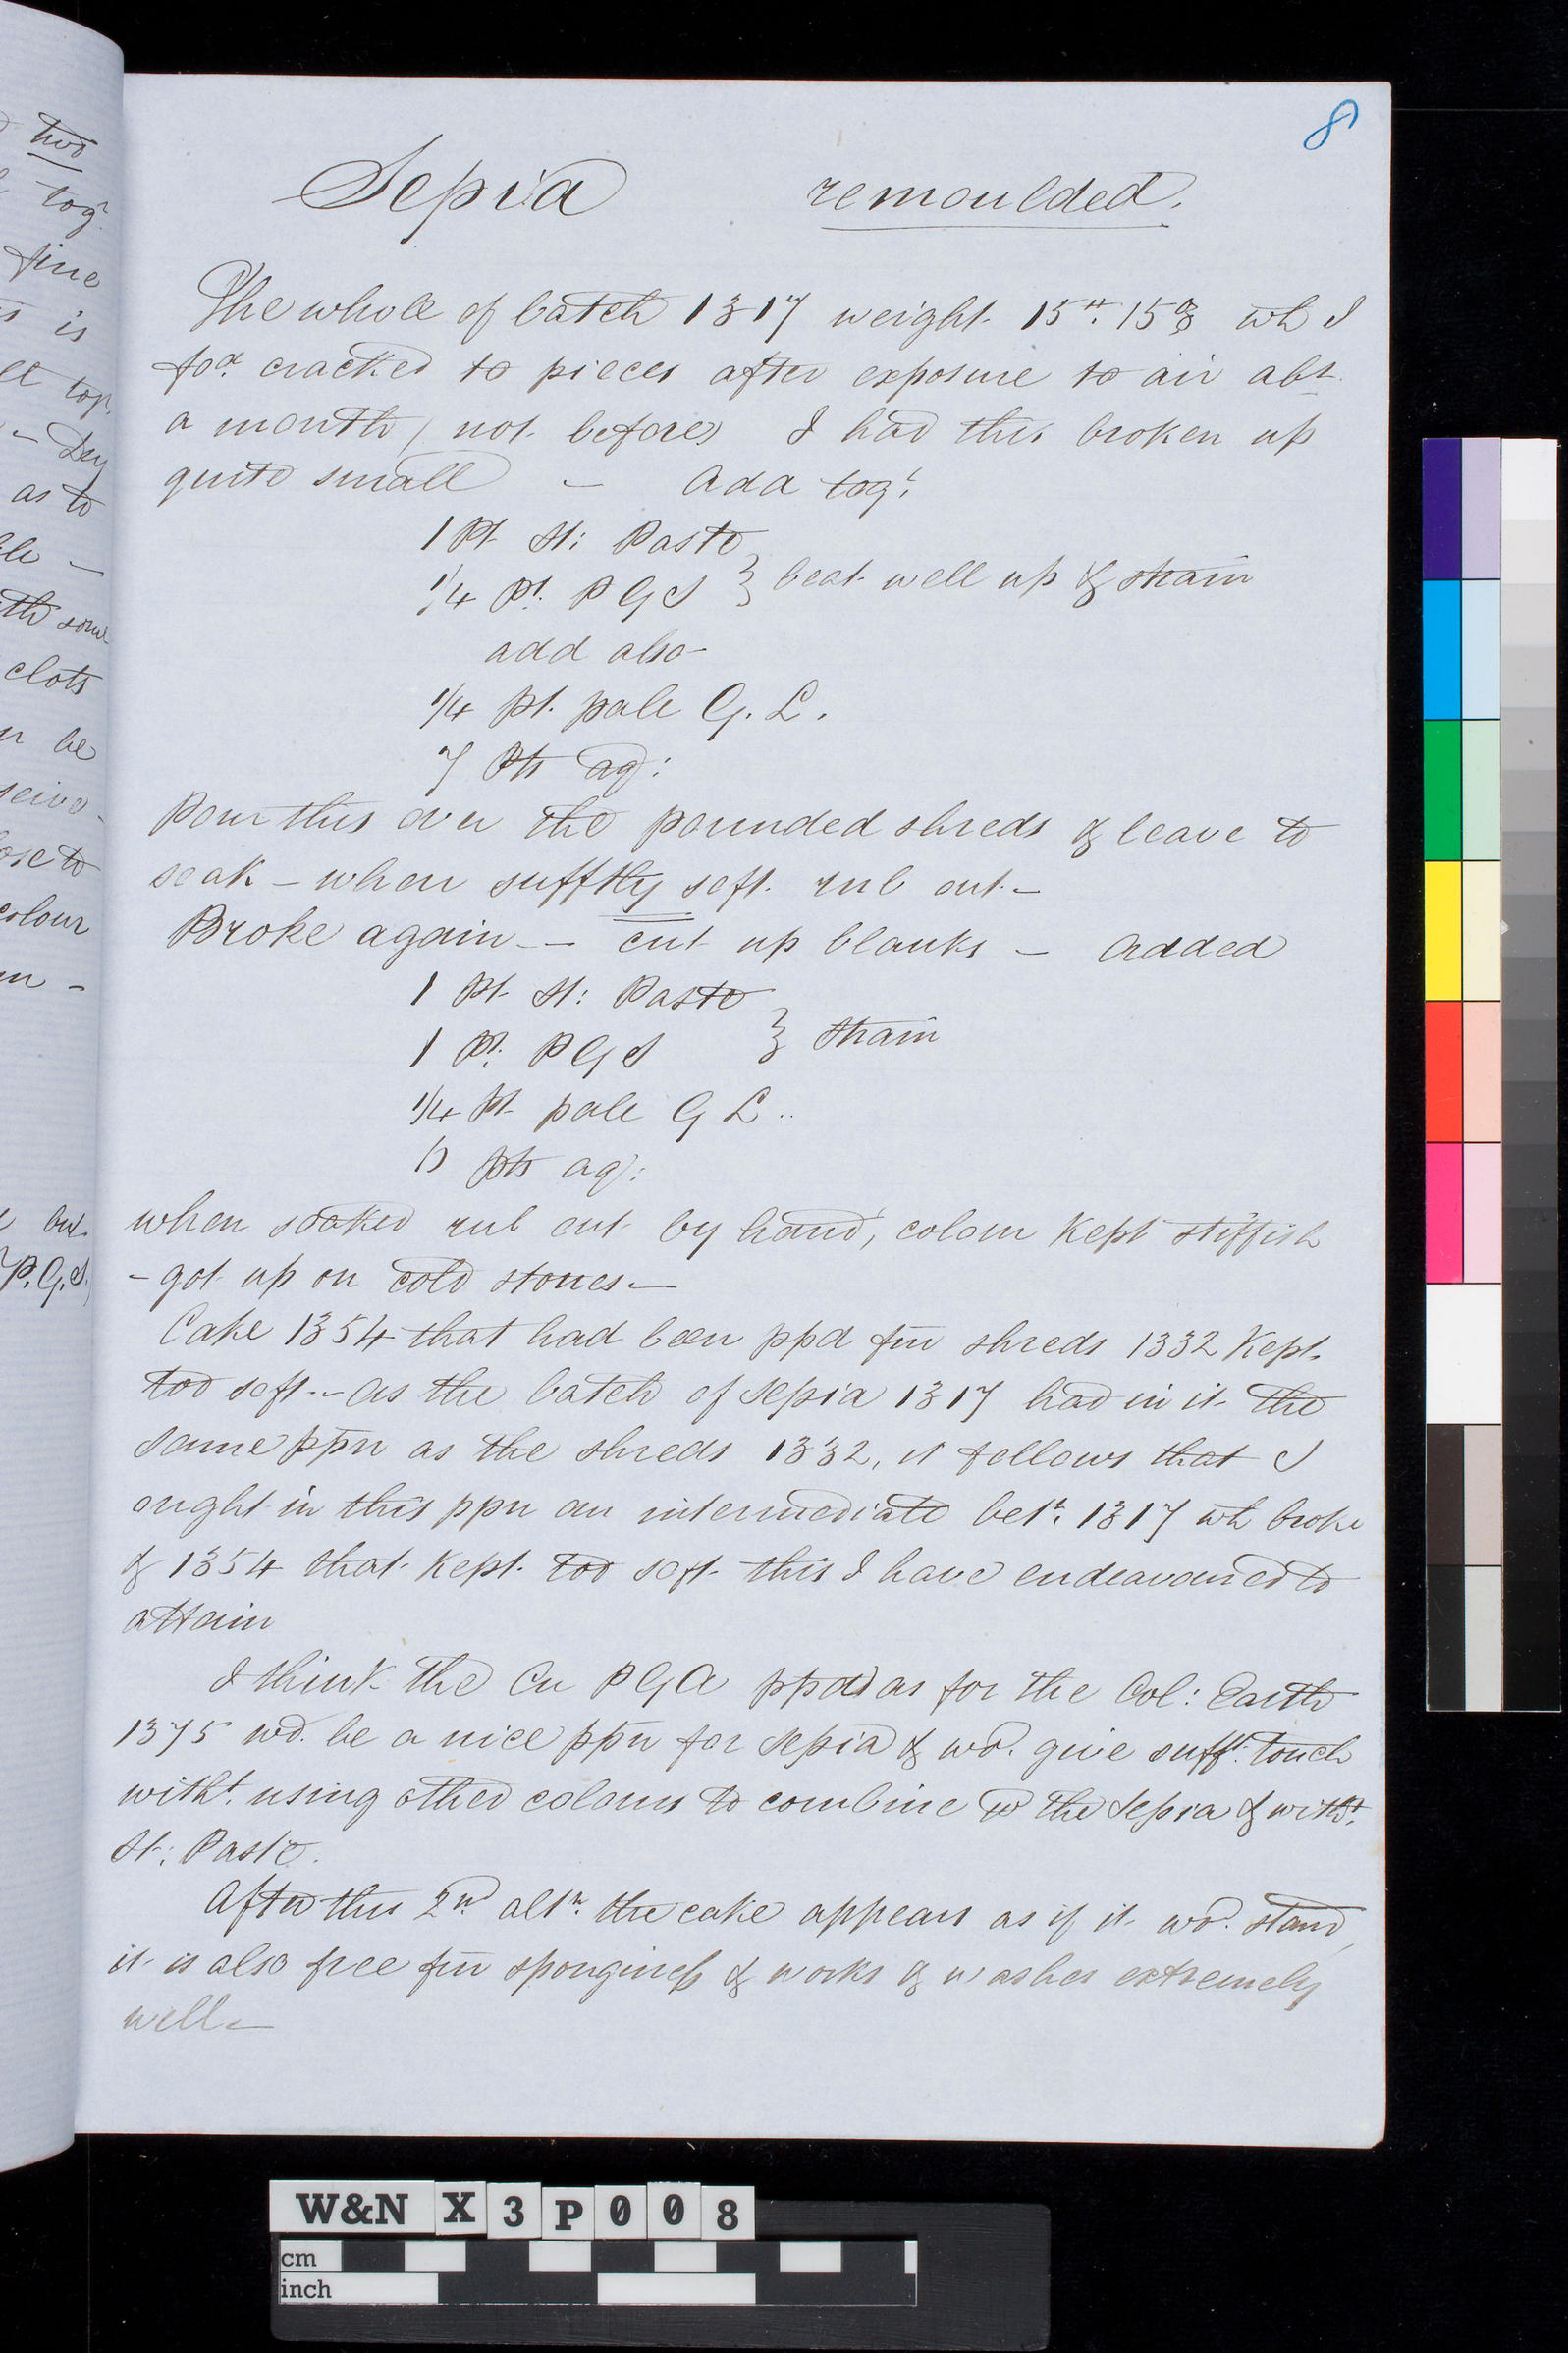 8
Sepia remoulded.
The whole of batch 1317 weight 15 lb. 15 oz wh I
fod. cracked to pieces after exposure to air abt.
a month (not before) I had this broken up
quite small — add togr.
1 Pt St: Paste
1/4 Pt. P G S } beat well up & strain
add also
1/4 pt. pale G. L.
7 Pts aq:
Pour this over the pounded shreds & leave to
soak – when sufftly soft rub out –
Broke again — cut up blanks – added
1 Pt St: Paste
1 Pt. P G S } strain
1/4 Pt pale G L..
pts aq:
when soaked rub out by hand, colour kept stiffish
– got up on cold stones. —
Cake 1354 that had been ppd fm shreds 1332 kept
too soft. – as the batch of Sepia 1317 had in it the
same ppn as the shreds 1332, it follows that I
ought in this ppn an intermediate betn. 1317 wh broke
& 1354 that kept too soft this I have endeavoured to
attain
I think the Cu P G A ppd as for the Col: Earth
1375 wd. be a nice ppn for Sepia & wd. give sufft. touch
witht. using other colours to combine w the Sepia & witht.
St: Paste.
After this 2nd altn. the cake appears as if it wd. stand,
it is also free fm sponginess & works & washes extremely
well —
two
togr.
fine
is
togr.
– Dry
as to
—
some
clots
be
seive
to
colour
–
but
P.G.S.
W&N X 3 P 0 0 8
cm
inch